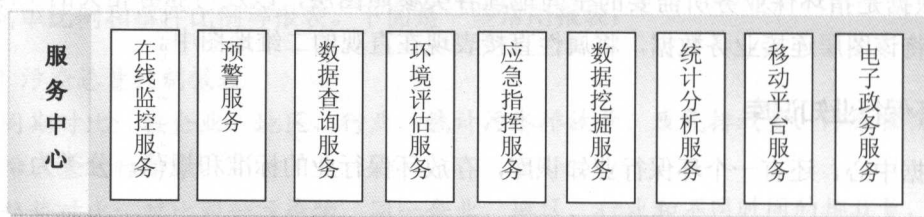 服务中心
在线监控服务
预警服务
数据查询服务
环境评估服务
应急指挥服务
数据挖掘服务
统计分析服务
移动平台服务
电子政务服务